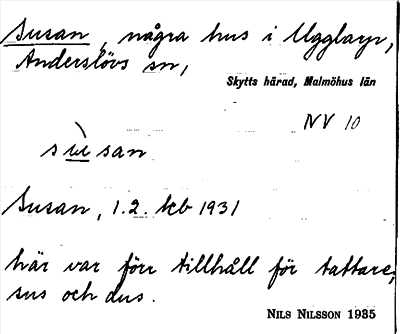 Susan, några hus i Ugglarp,
Anderslövs sn,
Skytts härad, Malmöhus län
NV 10
sùsan
Susan, 1.2. kb 1931
här var förr tillhåll för tattare,
sus och dus.
NILS NILSSON 1935